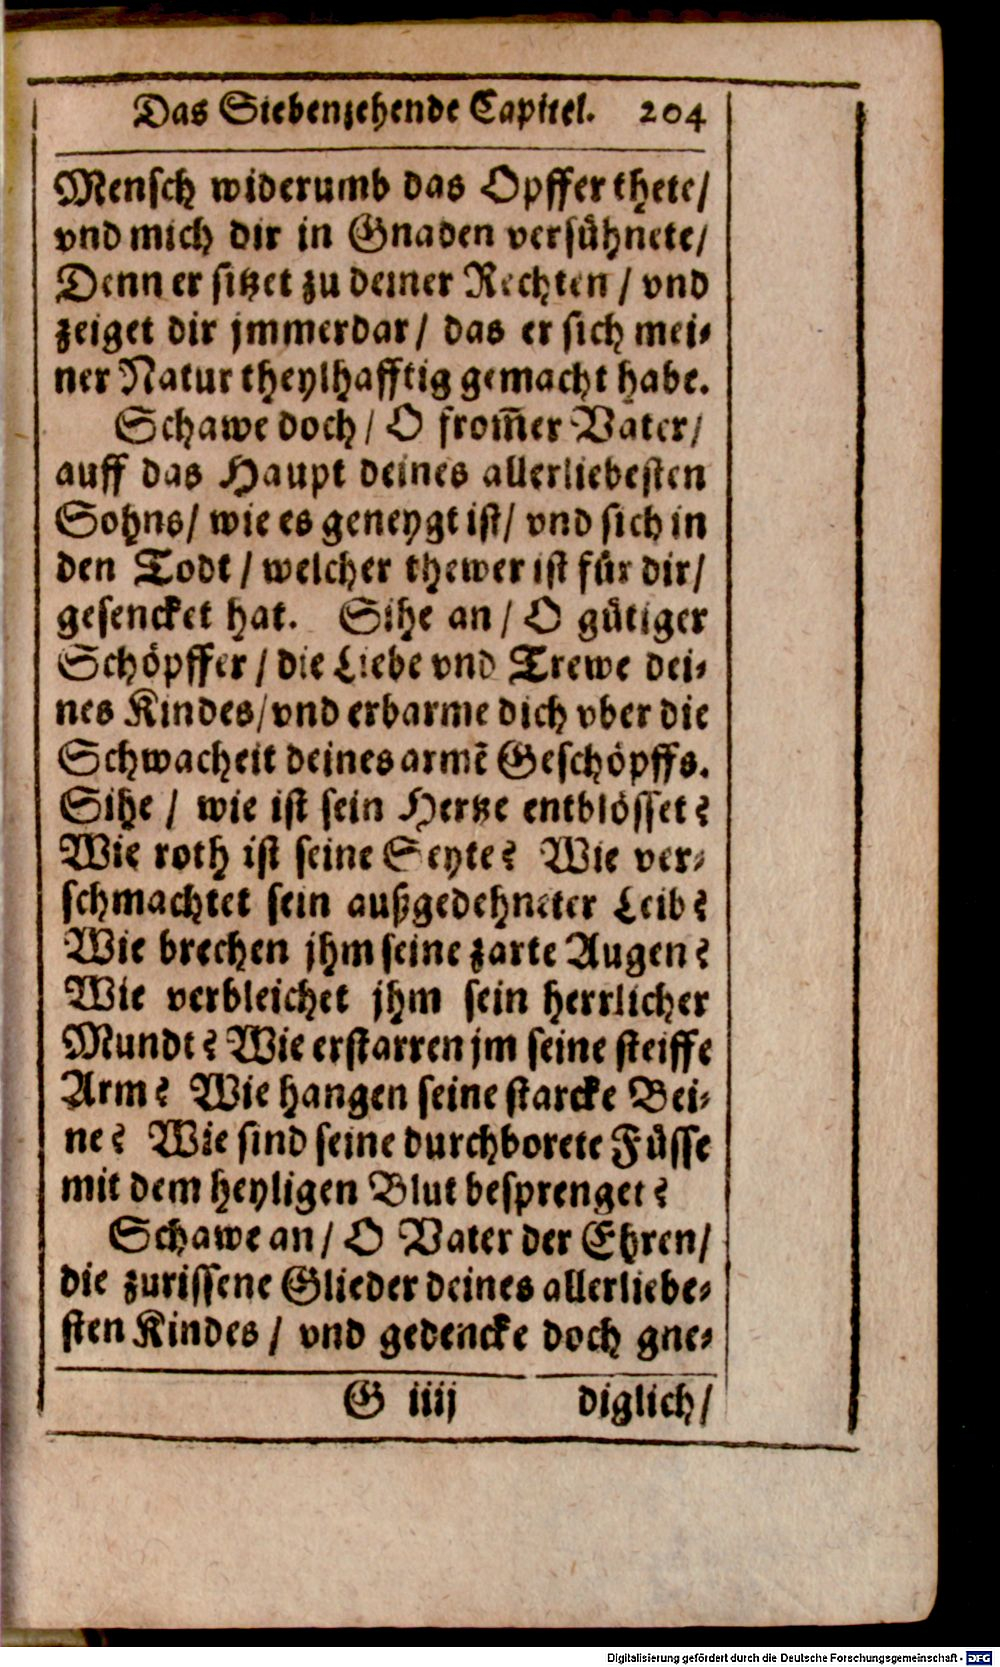 Das Siebenzehende Capitel. 204
Mensch widerumb das Opffer thete/
vnd mich dir in Gnaden versühnete/
Denn er sitzet zu deiner Rechten / vnd
zeiget dir jmmerdar / das er sich mei-
ner Natur theylhafftig gemacht habe.
Schawe doch / O from̅er Vater/
auff das Haupt deines allerliebesten
Sohns/ wie es geneygt ist/ vnd sich in
den Todt / welcher thewer ist für dir/
gesencket hat. Sihe an / O gütiger
Schöpffer / die Liebe vnd Trewe dei-
nes Kindes/ vnd erbarme dich vber die
Schwacheit deines armẽ Geschöpffs.
Sihe / wie ist sein Hertze entblösset?
Wie roth ist seine Seyte? Wie ver-
schmachtet sein außgedehneter Leib?
Wie brechen jhm seine zarte Augen?
Wie verbleichet jhm sein herrlicher
Mundt? Wie erstarren jm seine steiffe
Arm? Wie hangen seine starcke Bei-
ne? Wie sind seine durchborete Füsse
mit dem heyligen Blut besprenget?
Schawe an / O Vater der Ehren/
die zurissene Glieder deines allerliebe-
sten Kindes / vnd gedencke doch gne-
G iiij diglich/
Digitalisierung gefördert durch die Deutsche Forschungsgemeinschaft - DFG